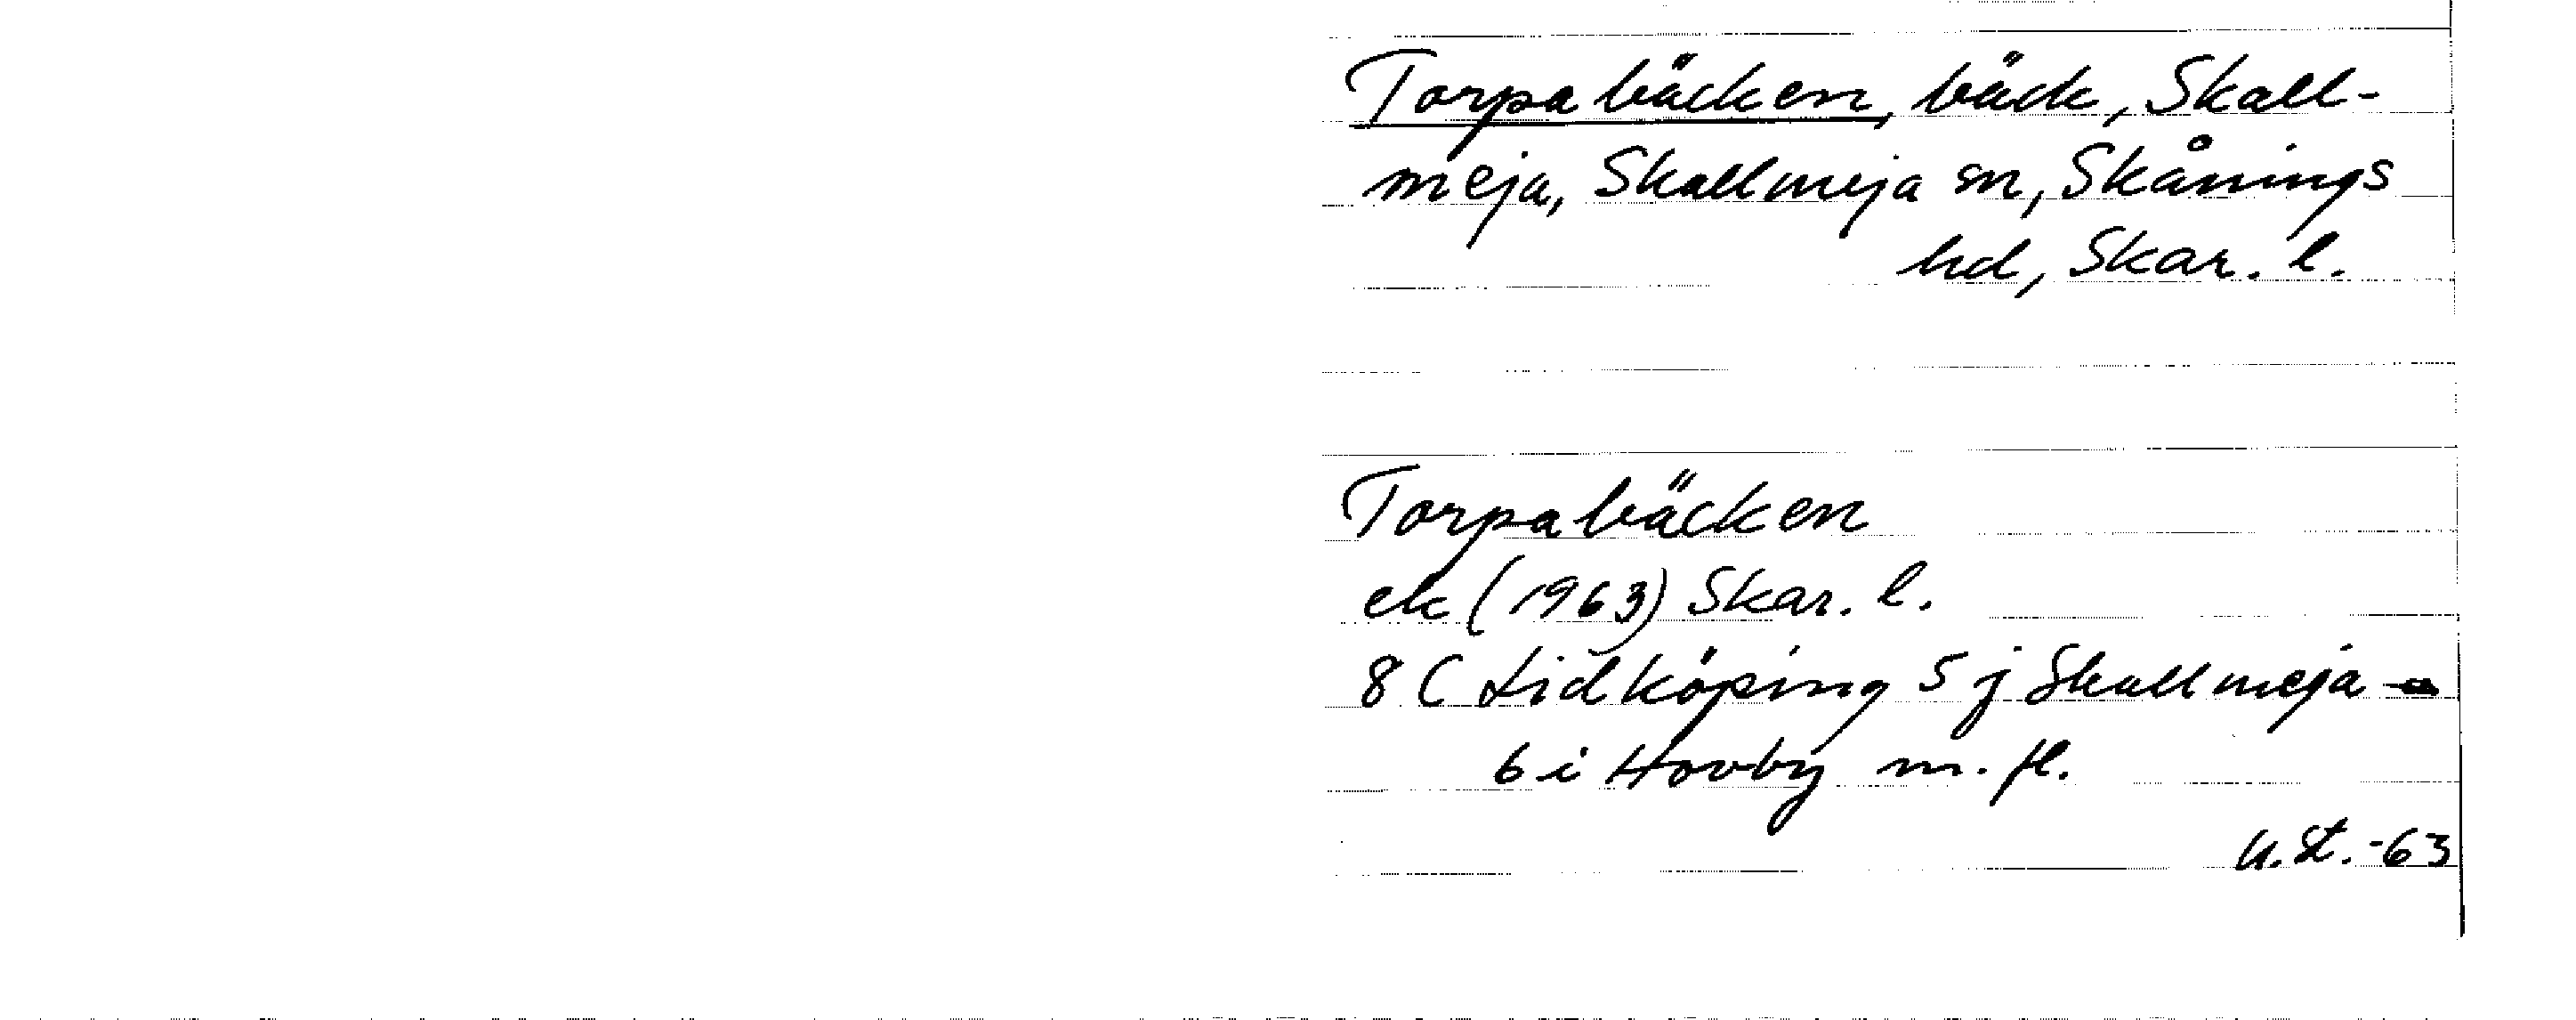 Torpabäcken, bäck, Skall-
meja, Skallmeja sn, Skånings
hd, Skar. l.
Torpabäcken
ek (1963) Skar. l.
8 C Lidköping 5 j Skallmeja
6 i Hovby m. fl.
U.St.-63